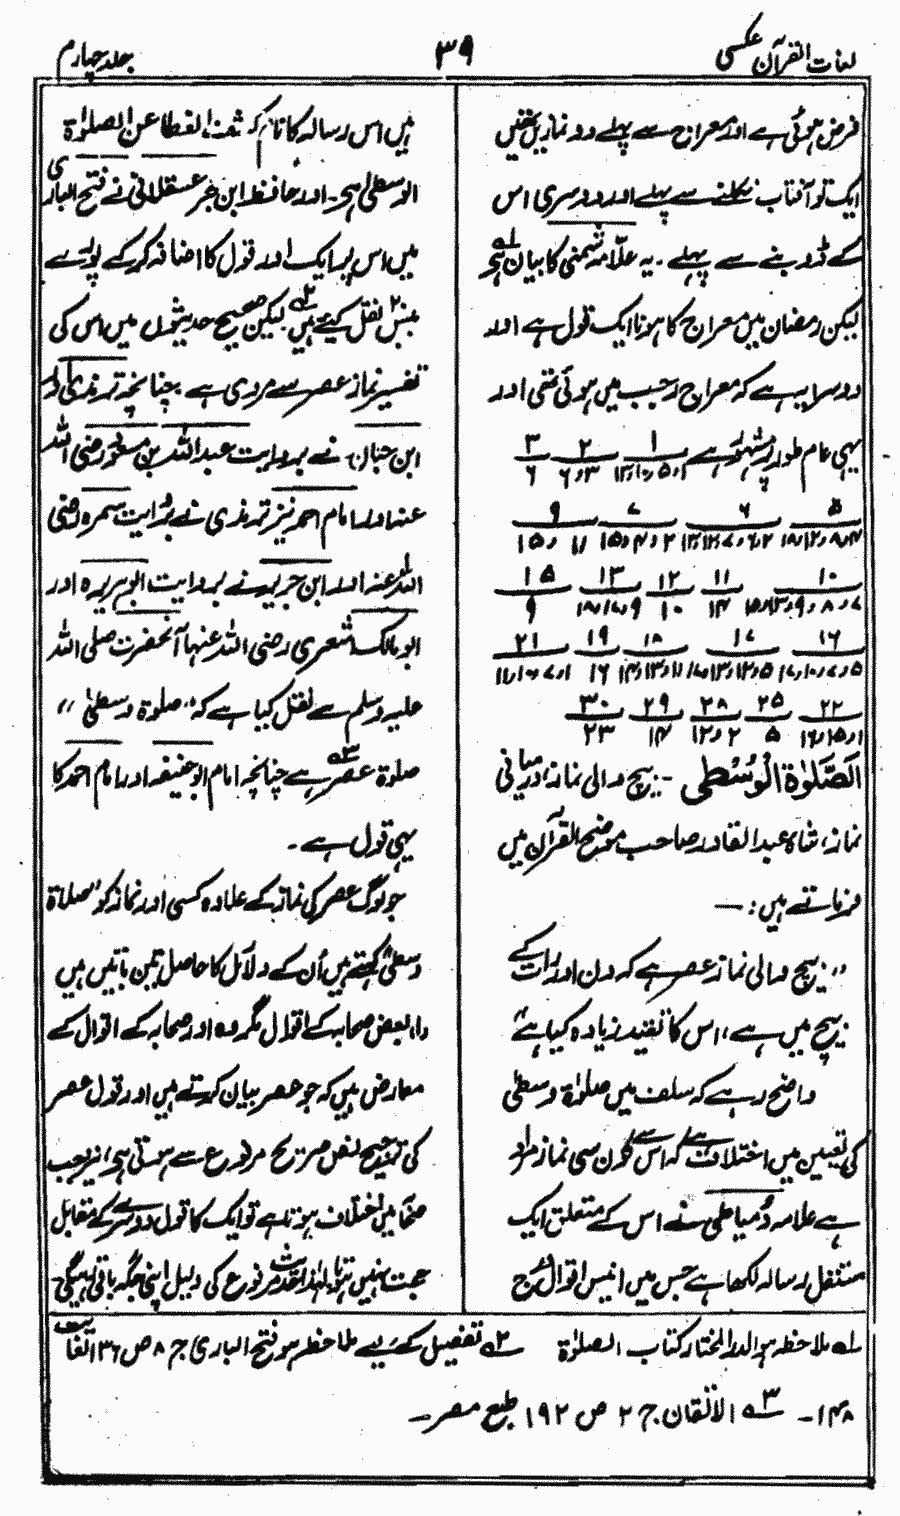 لغات القرآن عکسی
۳۹
جلد چہارم
فرض ہوئی ہے اور معراج سے پہلے دو نمازیں تھیں
ایک تو آفتاب نکلنے سے پہلے اور دوسری اس
کے ڈوبنے سے پہلے ۔ یہ علّامہ شمنی کا بیان ہے
لیکن رمضان میں معراج کا ہونا ایک قول ہے اور
دوسرا یہ ہے کہ معراج رجب میں ہوئی تھی اور
یہی عام طور پر مشہور ہے ۱ ۲ ۳
۵ ۶ ۷ ۹
۱۰ ۱۱ ۱۲ ۱۳ ۱۵
۱۶ ۱۷ ۱۸ ۱۹ ۲۱
۲۲ ۲۵ ۲۸ ۲۹ ۳۰
الصَّلٰوۃ الْوُسْطٰی ۔ بیچ والی نماز، درمیانی
نماز، شاہ عبدالقادر صاحب موضح القرآن میں
فرماتے ہیں :—
”بیچ والی نماز عصر ہے کہ دن اور رات کے
بیچ میں ہے، اس کا تقید زیادہ کیا ہے“
واضح رہے کہ سلف میں صلوٰۃ وسطیٰ
کی تعیین میں اختلاف ہے کہ اس سے کون سی نماز مراد
ہے علامہ دمیاطی نے اس کے متعلق ایک
مستقل رسالہ لکھا ہے جس میں انیس اقوال درج
ہیں اس رسالہ کا نام کشف الغطا عن الصلوٰۃ
الوسطیٰ ہے ۔ اور حافظ ابن حجر عسقلانی نے فتح الباری
میں اس پر ایک اور قول کا اضافہ کر کے پورے
بیس نقل کیے ہیں لیکن صحیح حدیثوں میں اس کی
تفسیر نماز عصر سے مروی ہے چنانچہ ترمذی اور
ابن حبان نے بروایت عبداللہ بن مسعود رضی اللہ
عنہ اور امام احمد نیز ترمذی نے بروایت سمرہ رضی
اللہ عنہ اور ابن جریر نے بروایت ابوہریرہ اور
ابو مالک اشعری رضی اللہ عنہما آنحضرت صلی اللہ
علیہ وسلم سے نقل کیا ہے کہ ”صلوۃ وسطیٰ“
صلوۃ عصر ہے چنانچہ امام ابو حنیفہ اور امام احمد کا
یہی قول ہے ۔
جو لوگ عصر کی نماز کے علاوہ کسی اور نماز کو ”صلاۃ
وسطیٰ“ کہتے ہیں اُن کے دلائل کا حاصل تین باتیں ہیں
(۱) بعض صحابہ کے اقوال مگر وہ اور صحابہ کے اقوال کے
معارض ہیں کہ جو عصر بیان کرتے ہیں اور قول عصر
کی ترجیح نص صریح مرفوع سے ہوتی ہے، نیز جب
صحابہ میں اختلاف ہوتا ہے تو ایک کا قول دوسرے کے مقابل
حجت نہیں ہوتا لہٰذا حدیث مرفوع کی دلیل اپنی جگہ باقی رہیگی
لہ ملاحظہ ہو الدر المختار کتاب الصلوٰۃ ۲ہ تفصیل کے لیے ملاحظہ ہو فتح الباری ج ۸ ص
۱۴۸ ۔ ۳ہ الاتقان ج ۲ ص ۱۹۲ طبع مصر —